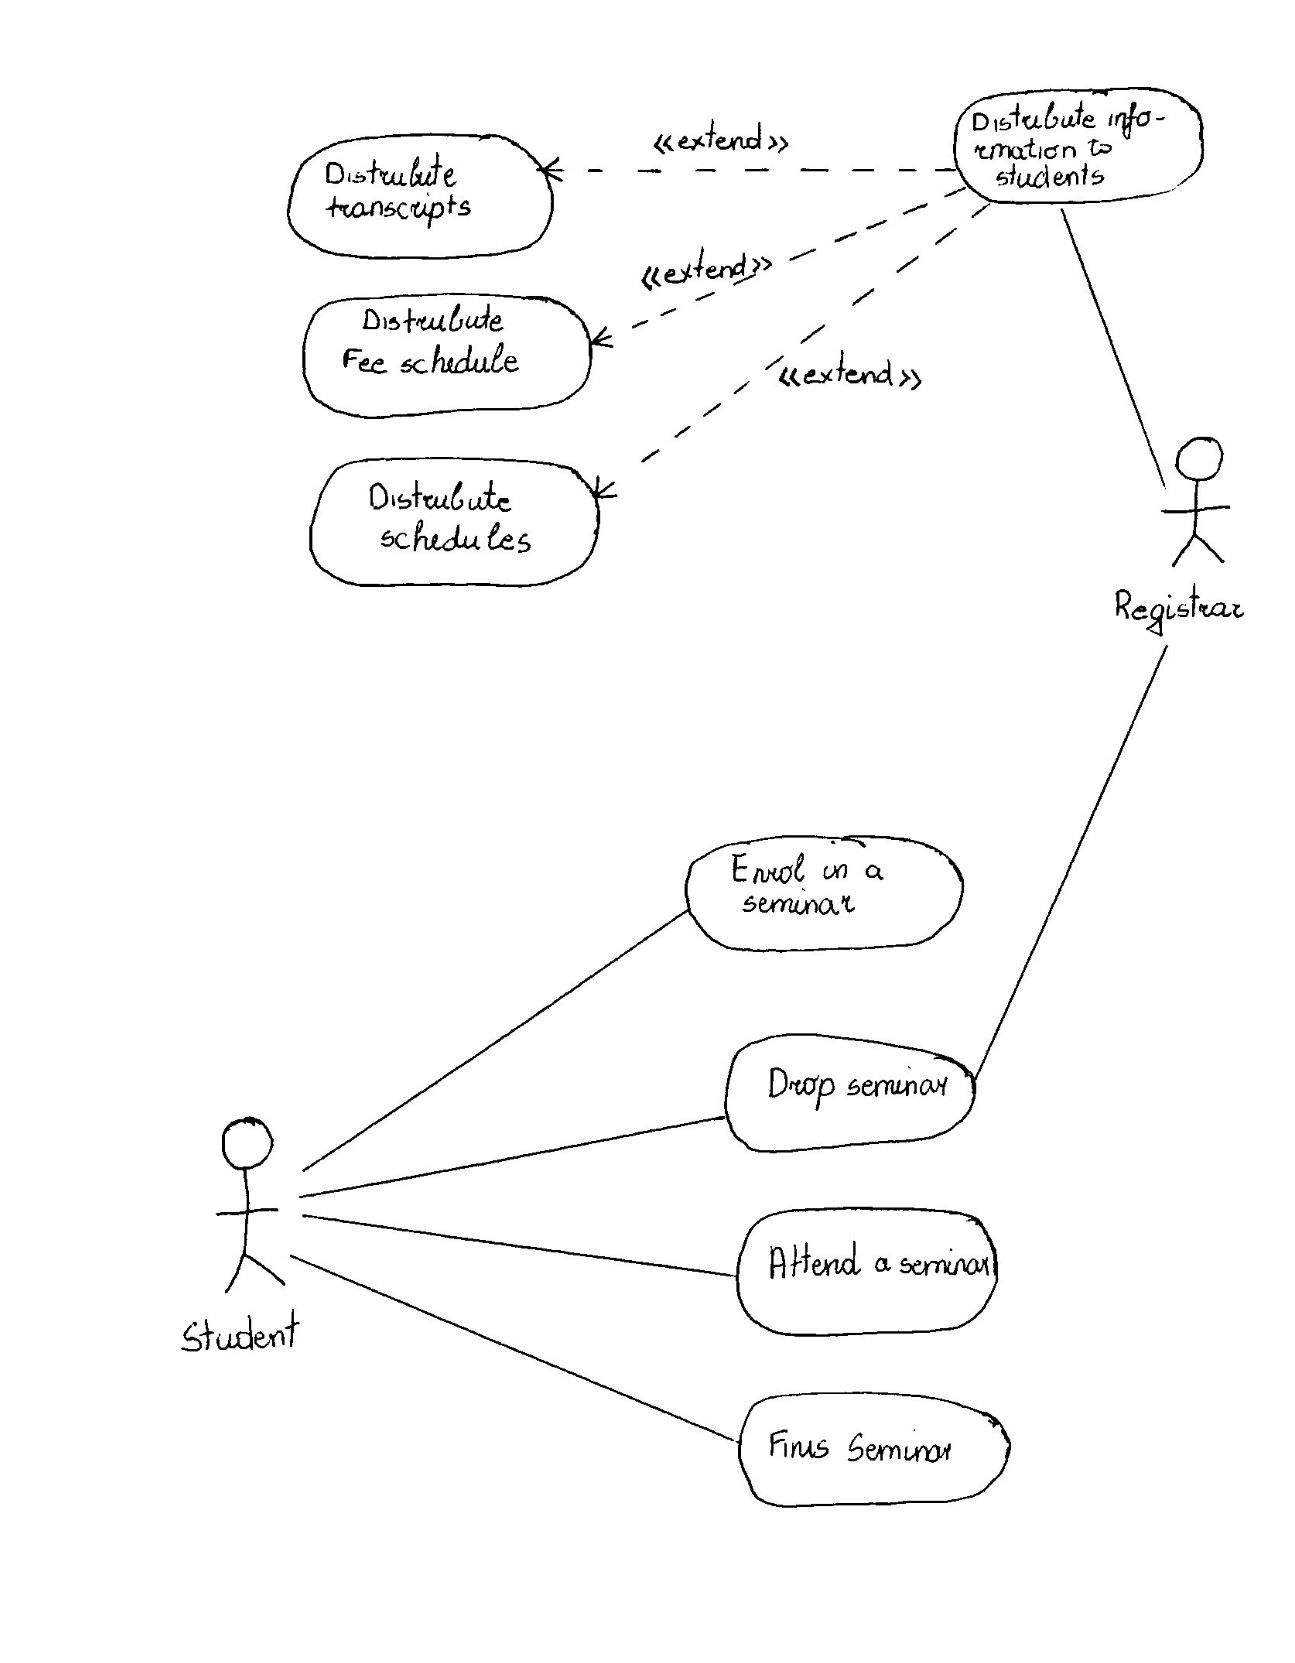 «extend»
Distribute info-
rmation to
students
Distrubute
transcripts
«extend»
Distrubute
Fee schedule
«extend»
Distrubute
schedules
Registrar
Enrol in a
seminar
Drop seminar
Attend a seminar
Student
Finis Seminar